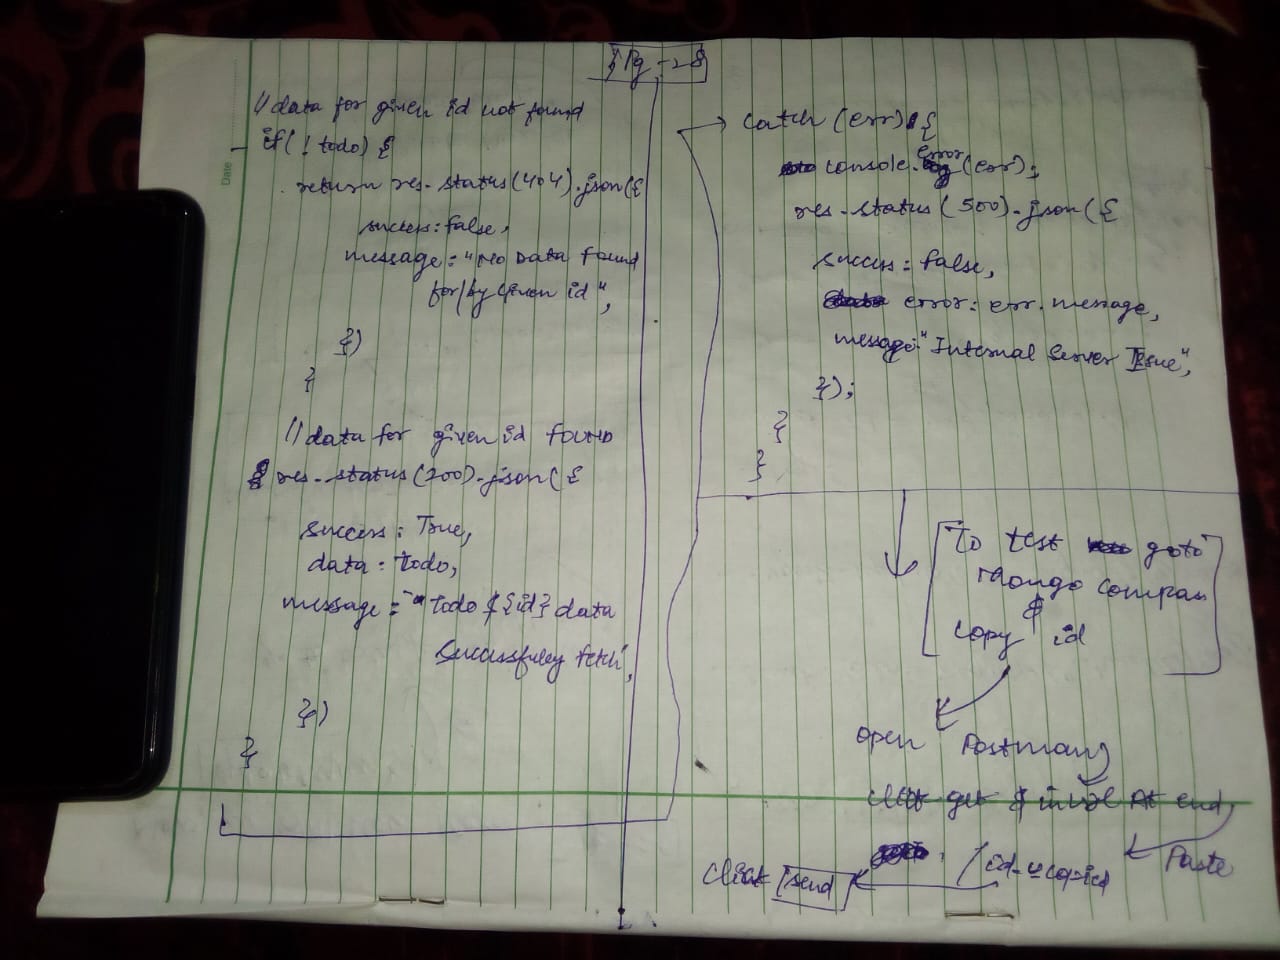 Pg - 28
Date
// data for given id not found
if( ! todo) {
return res.status(404).json({
success: false,
message: "No Data Found
for/by Given id",
})
}
// data for given id found
res.status(200).json({
success: True,
data: Todo,
message: "Todo ${id} data
Successfully fetch",
})
}
catch (err) {
console.error(err);
res.status(500).json({
success: false,
error: err.message,
message: "Internal Server Issue",
});
}
}
To test goto
Mongo compass
&
copy id
open Postman
click get & in url At end
Paste
/id-u copied
Click Send